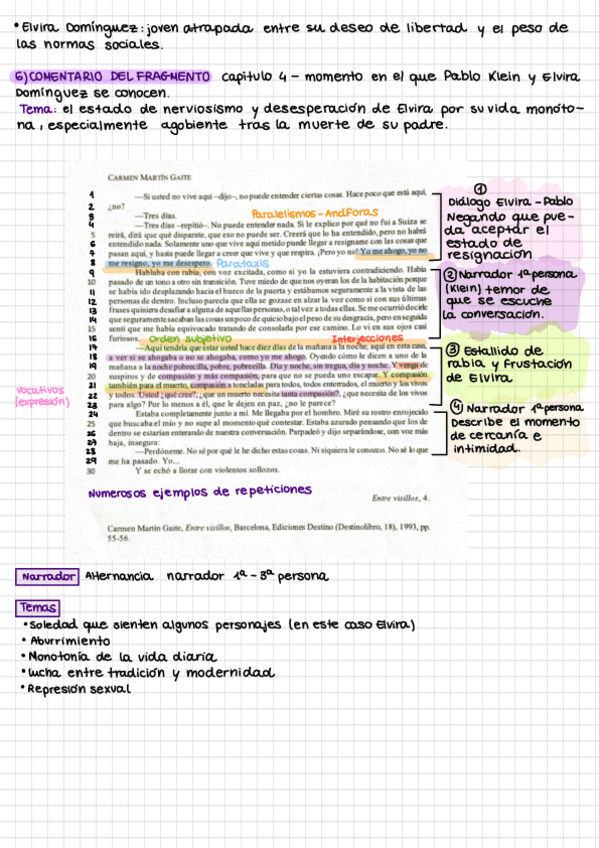 • Elvira Domínguez: joven atrapada entre su deseo de libertad y el peso de
las normas sociales.
6) COMENTARIO DEL FRAGMENTO capítulo 4 – momento en el que Pablo Klein y Elvira
Domínguez se conocen.
Tema: el estado de nerviosismo y desesperación de Elvira por su vida monóto-
na, especialmente agobiente tras la muerte de su padre.
CARMEN MARTÍN GAITE
1 —Si usted no vive aquí –dijo–, no puede entender ciertas cosas. Hace poco que está aquí,
2 ¿no?
3 —Tres días.
Paralelismos – Anáforas
4 —Tres días –repitió–. No puede entender nada. Si le explico por qué no fui a Suiza se
5 reirá, dirá que qué disparate, que eso no puede ser. Creerá que lo ha entendido, pero no habrá
6 entendido nada. Solamente uno que vive aquí metido puede llegar a resignarse con las cosas que
7 pasan aquí, y hasta puede llegar a creer que vive y que respira. ¡Pero yo no! Yo me ahogo, yo no
8 me resigno, yo me desespero. Parataxis
9 Hablaba con rabia, con voz excitada, como si yo la estuviera contradiciendo. Había
10 pasado de un tono a otro sin transición. Tuve miedo de que nos oyeran los de la habitación porque
11 se había ido desplazando hacia el hueco de la puerta y estábamos seguramente a la vista de las
12 personas de dentro. Incluso parecía que ella se gozase en alzar la voz como si con sus últimas
13 frases quisiera desafiar a alguna de aquellas personas, o tal vez a todas ellas. Se me ocurrió decirle
14 que seguramente sacaban las cosas un poco de quicio bajo el peso de su desgracia, pero en seguida
15 sentí que me había equivocado tratando de consolarla por ese camino. Lo vi en sus ojos casi
16 furiosos. Orden subjetivo Interjecciones
17 —Aquí tendría que estar usted hace diez días de la mañana a la noche, aquí en esta casa,
18 a ver si se ahogaba o no se ahogaba, como yo me ahogo. Oyendo cómo le dicen a uno de la
19 mañana a la noche pobrecilla, pobre, pobrecilla. Día y noche, sin tregua, día y noche. Y venga de
20 suspiros y de compasión y más compasión, para que no se pueda uno escapar. Y compasión
21 también para el muerto, compasión a toneladas para todos, todos enterrados, el muerto y los vivos
22 y todos. Usted ¿qué cree?, ¿que un muerto necesita tanta compasión?, ¿que necesita de los vivos
23 para algo? Por lo menos a él, que le dejen en paz, ¿no le parece?
24 Estaba completamente junto a mí. Me llegaba por el hombro. Miré su rostro enrojecido
25 que buscaba el mío y no supe al momento qué contestar. Estaba azarado pensando que los de
26 dentro se estarían enterando de nuestra conversación. Parpadeó y dijo separándose, con voz más
27 baja, insegura:
28 —Perdóneme. No sé por qué le he dicho estas cosas. Ni siquiera le conozco. No sé lo que
29 me ha pasado. Yo...
30 Y se echó a llorar con violentos sollozos.
Vocativos
(expresión)
① Diálogo Elvira – Pablo
Negando que pue-
da aceptar el
estado de
resignación
② Narrador 1ª persona
(Klein) temor de
que se escuche
la conversación.
③ Estallido de
rabia y frustación
de Elvira.
④ Narrador 1ª persona
Describe el momento
de cercanía e
intimidad.
Numerosos ejemplos de repeticiones
Entre visillos, 4.
Carmen Martín Gaite, Entre visillos, Barcelona, Ediciones Destino (Destinolibro, 18), 1993, pp.
55-56.
Narrador Alternancia narrador 1ª – 3ª persona
Temas
• Soledad que sienten algunos personajes (en este caso Elvira)
• Aburrimiento
• Monotonía de la vida diaria
• Lucha entre tradición y modernidad
• Represión sexual